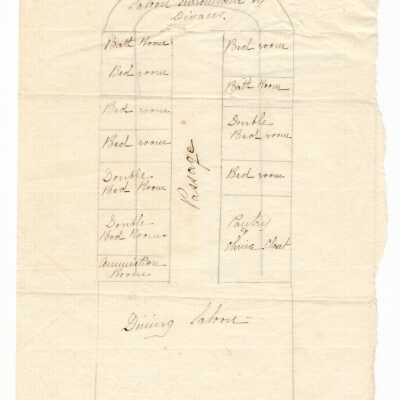 Saloon surrounded by
Divans.
Bath Room
Bed room
Bed room
Bed room
Double
Bed Room
Double
Bed Room
Ammunition
Room
Passage
Bed room
Bath Room
Double
Bed room
Bed room
Pantry
&
China Closet
Dining Saloon